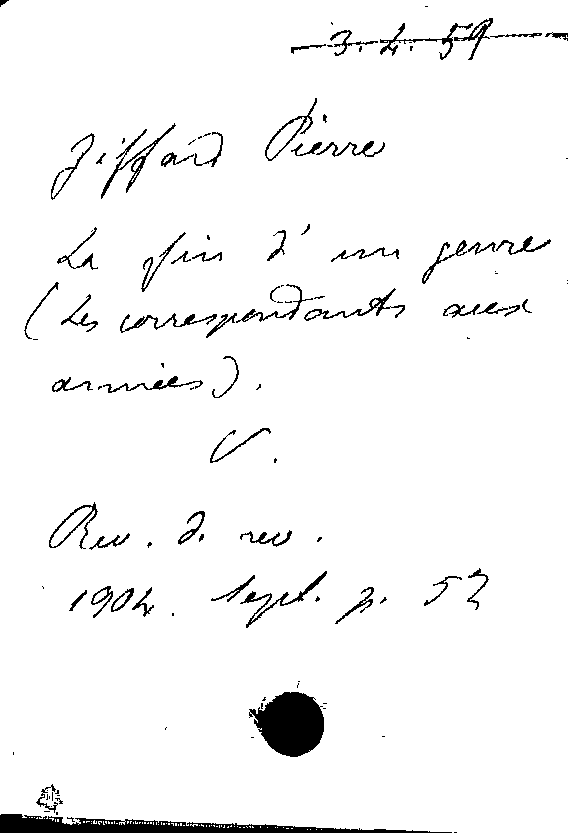 3.4.59
Giffard Pierre
La fin d'un genre
(Les correspondants aux
armées).
V.
Rev. d. rev.
1904. Sept. p. 52